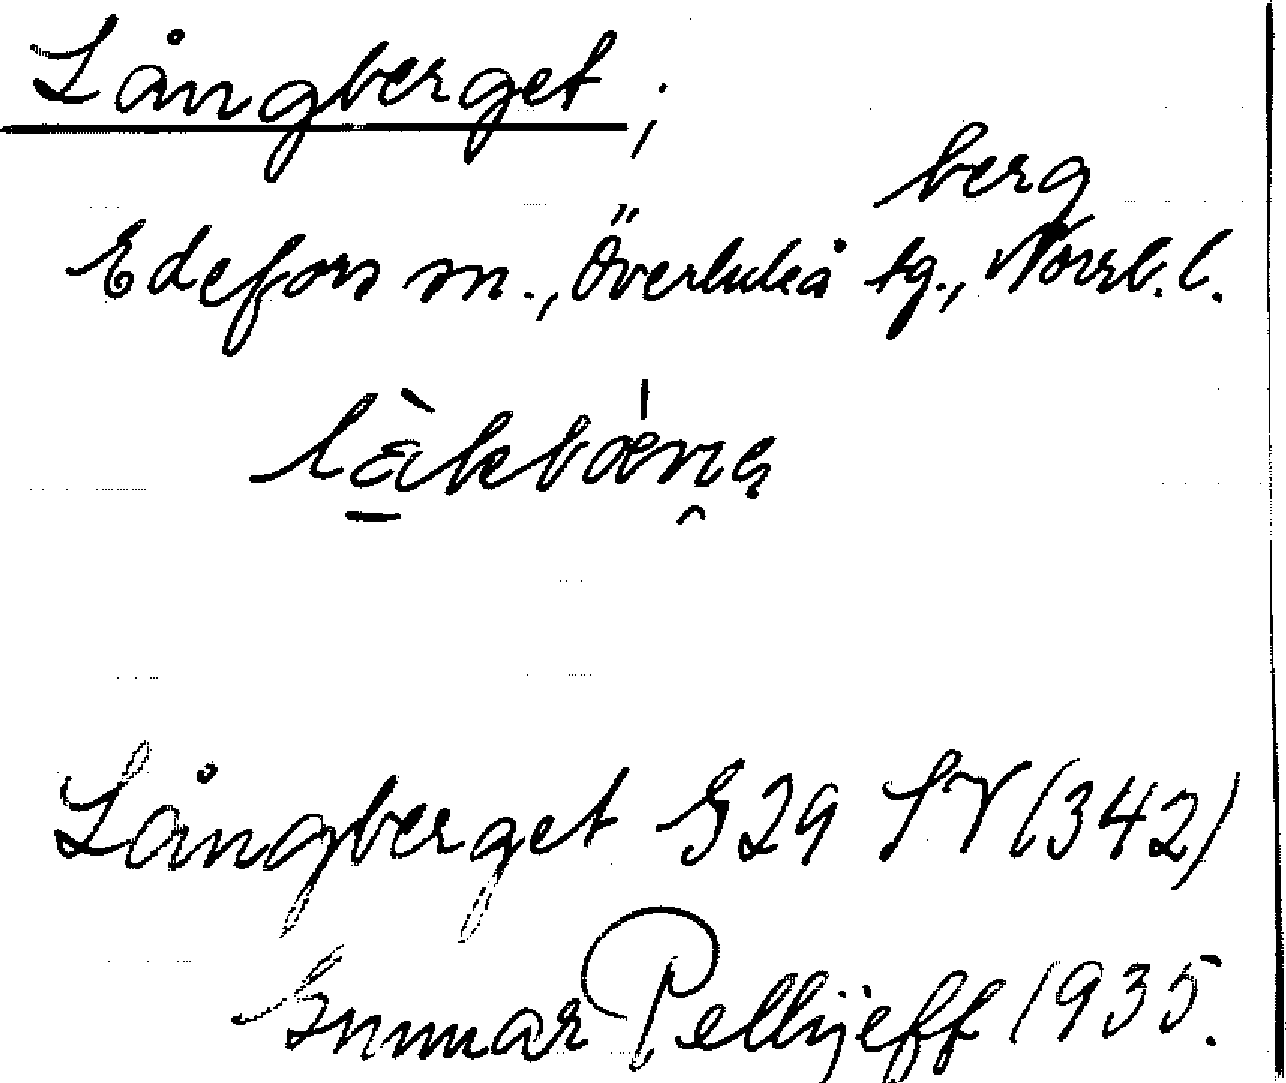 Långberget;
berg
Edefors sn., Överluleå tg., Norrb. l.
Långberget G29 SV (342)
Gunnar Pellijeff 1935.